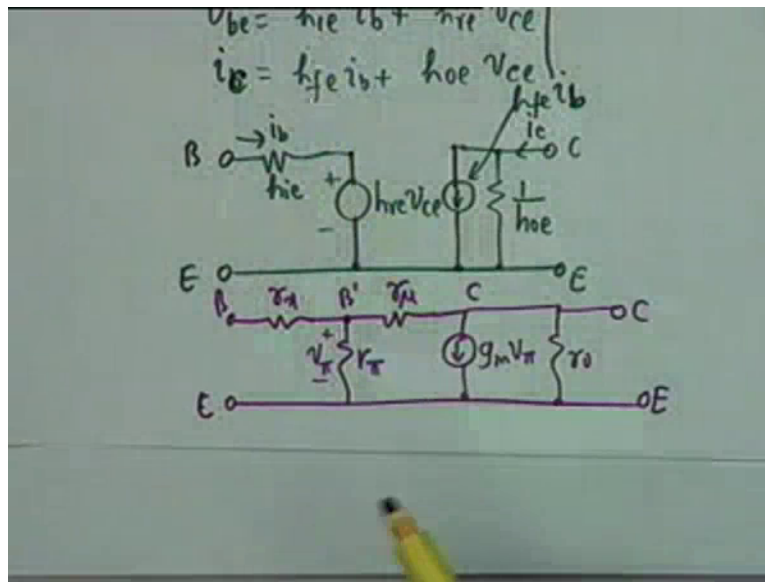 υbe = hie ib + hre vce
ic = hfe ib + hoe vce
hfe ib
B ib ic C
hie + hre vce 1/hoe
-
E E
B rx B' rμ C C
+ vπ - rπ gm vπ ro
E E